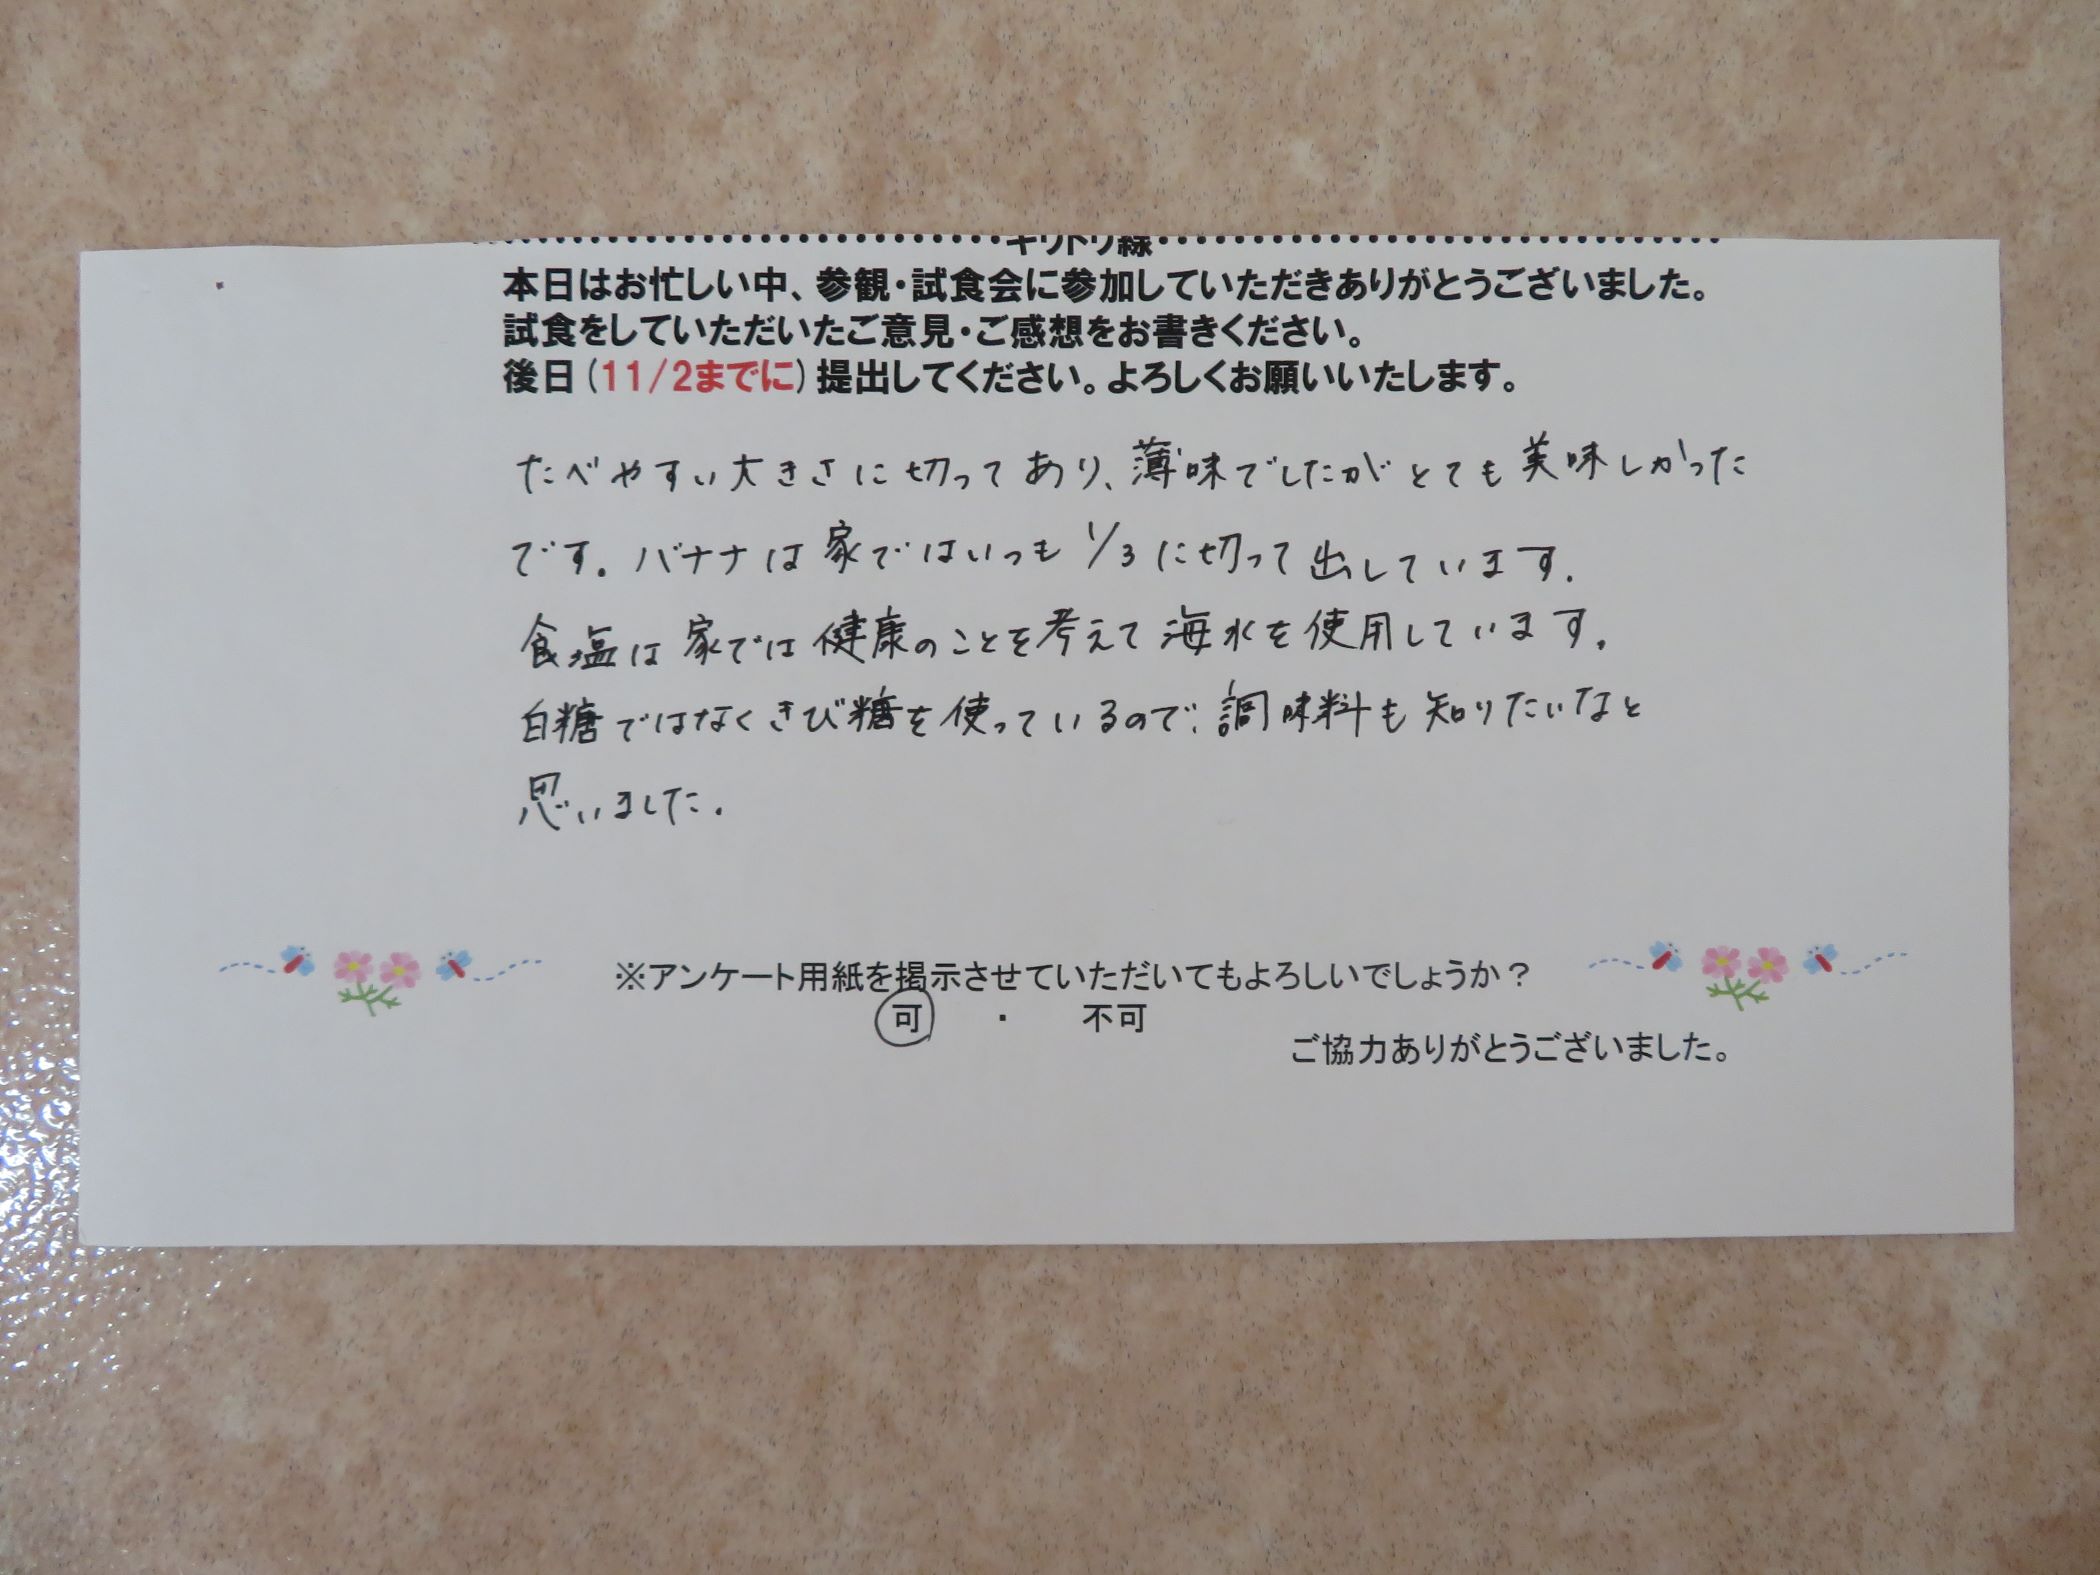 キリトリ線
本日はお忙しい中、参観・試食会に参加していただきありがとうございました。
試食をしていただいたご意見・ご感想をお書きください。
後日(11/2までに)提出してください。よろしくお願いいたします。
たべやすい大きさに切ってあり、薄味でしたがとても美味しかった
です。バナナは家ではいつも1/3に切って出しています。
食塩は家では健康のことを考えて海水を使用しています。
白糖ではなくきび糖を使っているので、調味料も知りたいなと
思いました。
※アンケート用紙を掲示させていただいてもよろしいでしょうか？
可 ・ 不可
ご協力ありがとうございました。